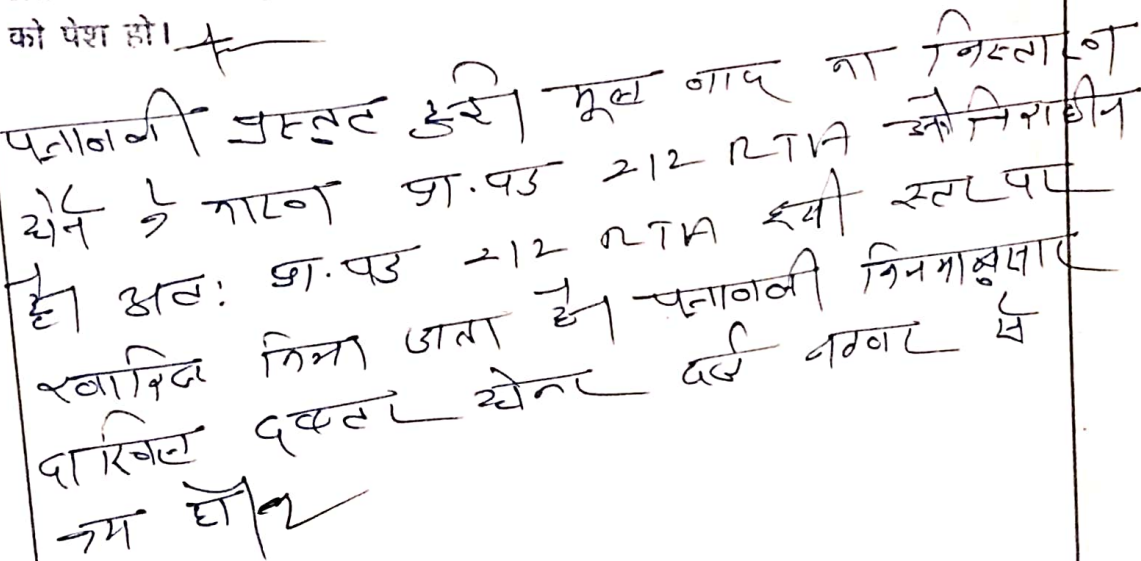 को पेश हो।
पत्रावली प्रस्तुत हुई। मूल वाद का निस्तारण
होने के कारण प्रा.पत्र 212 RTA
है। अतः प्रा.पत्र 212 RTA इसी स्तर पर
खारिज किया जाता है। पत्रावली नियमानुसार
दाखिल दफ्तर होकर दर्ज नम्बर से
कम हो।